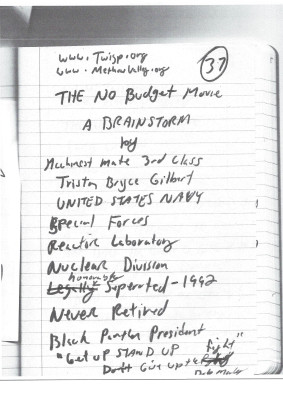 www.Twisp.org
www.MethowValley.org
37
THE NO Budget Movie
A BRAINSTORM
by
Machinist Mate 3rd Class
Tristan Bryce Gilbert
UNITED STATES NAVY
Special Forces
Reactor Laboratory
Nuclear Division
honorably
Legally Seperated - 1992
Never Retired
Black Panther President
"Get UP STAND UP
Don't Give up the Fight"
Bob Marley